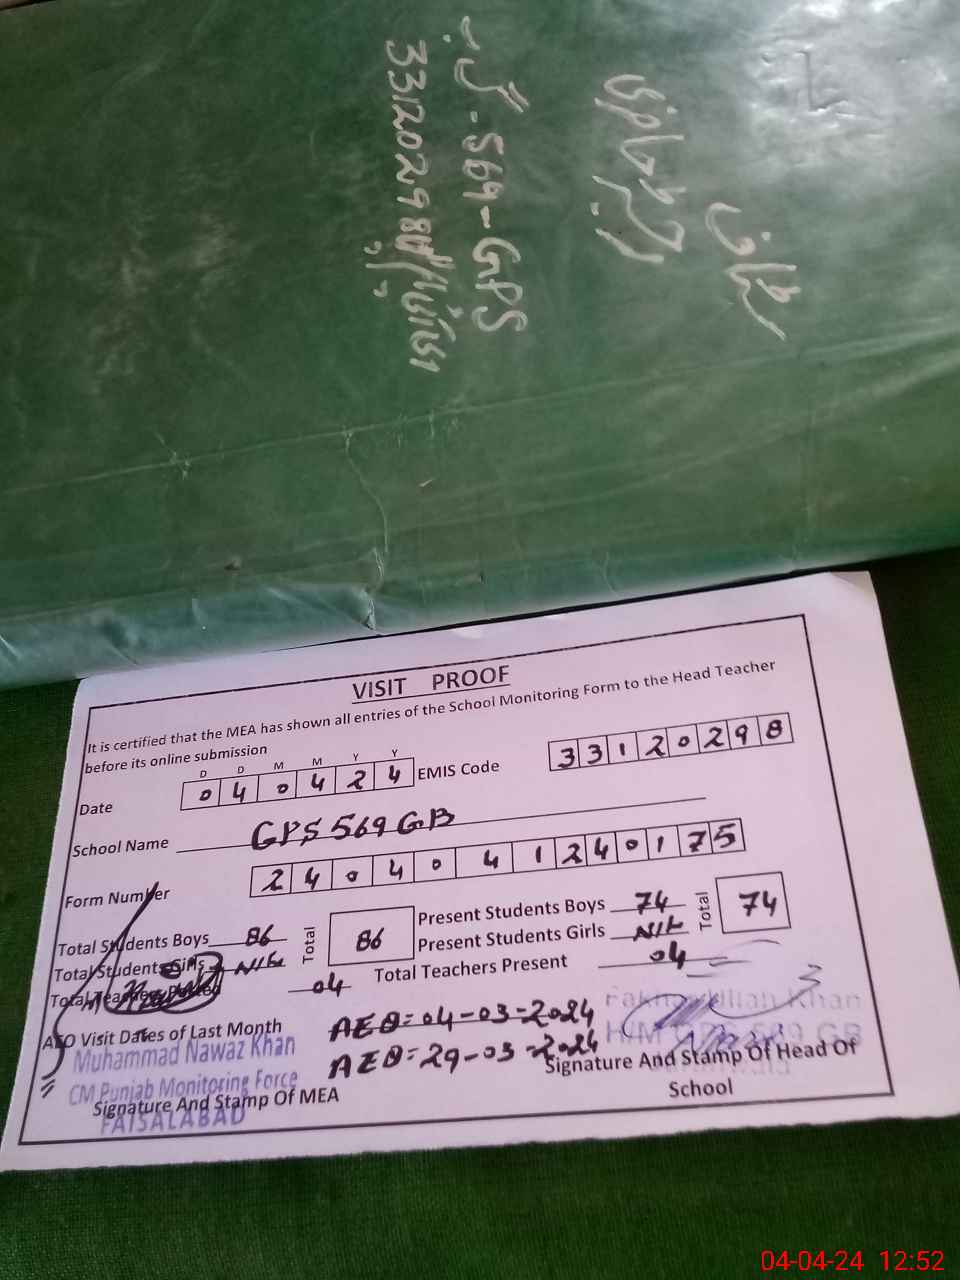 گ ب - 569 - GPS
33120298
VISIT PROOF
It is certified that the MEA has shown all entries of the School Monitoring Form to the Head Teacher
before its online submission
D D M M Y Y
Date 0 4 0 4 2 4 EMIS Code 3 3 1 2 0 2 9 8
School Name GPS 569 GB
Form Number 2 4 0 4 0 4 1 2 4 0 1 7 5
Total Students Boys 86 Total 86 Present Students Boys 74 Total 74
Total Students Girls Nil Present Students Girls Nil
Total Teachers Posted 04 Total Teachers Present 04
AEO Visit Dates of Last Month AEO = 04-03-2024
AEO = 29-03-2024
Muhammad Nawaz Khan
CM Punjab Monitoring Force
FAISALABAD
Signature And Stamp Of MEA
Fakhar Ullah Khan
H/M GPS 569 GB
Signature And Stamp Of Head Of
School
04-04-24 12:52